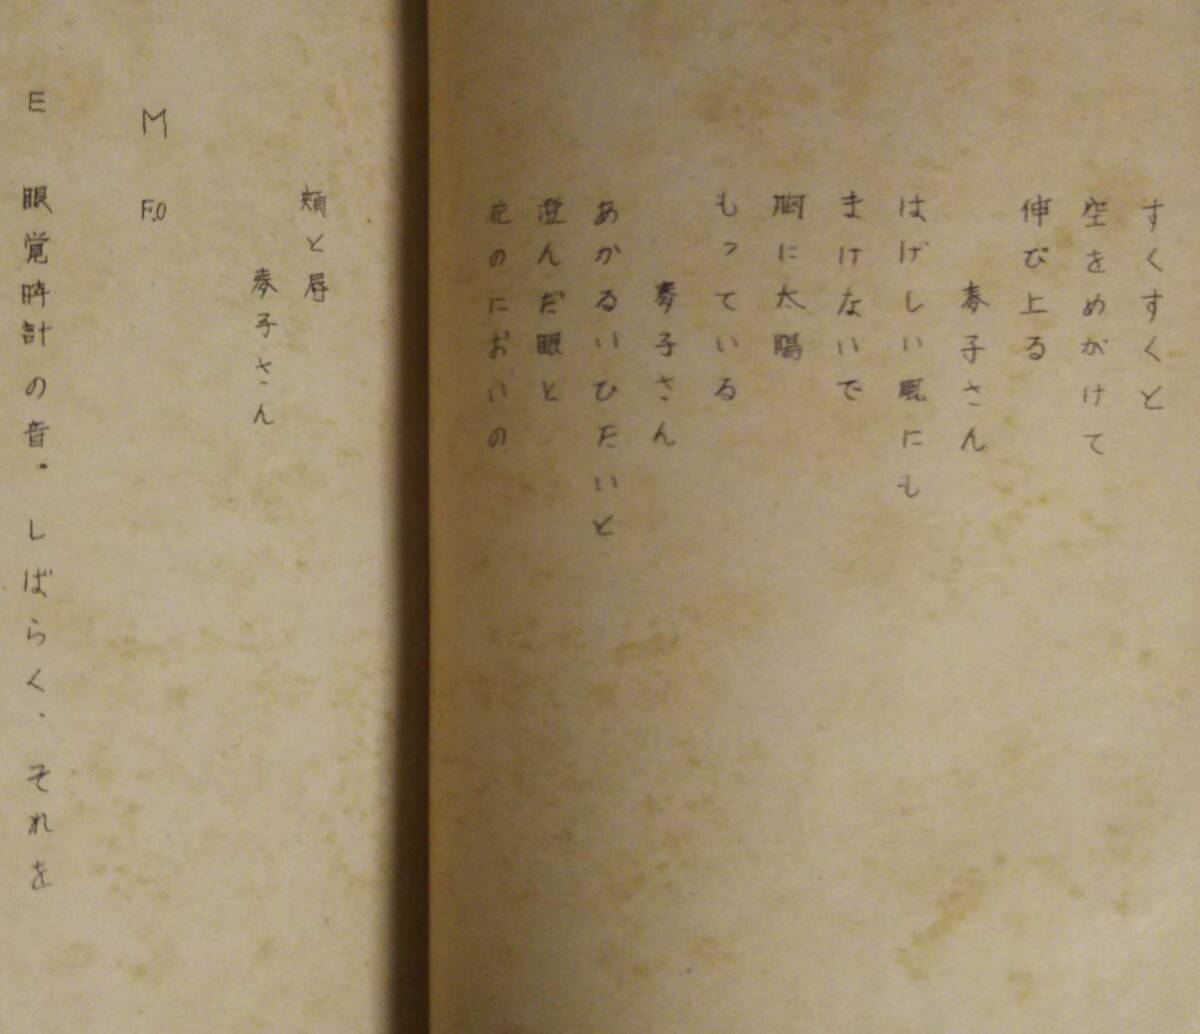 すくすくと
空をめがけて
伸び上る
春子さん
はげしい風にも
まけないで
胸に太陽
もっている
春子さん
あかるいひたいと
澄んだ眼と
花のにおいの
頬と唇
春子さん
M F.O
E 眼覚時計の音。しばらく、それを